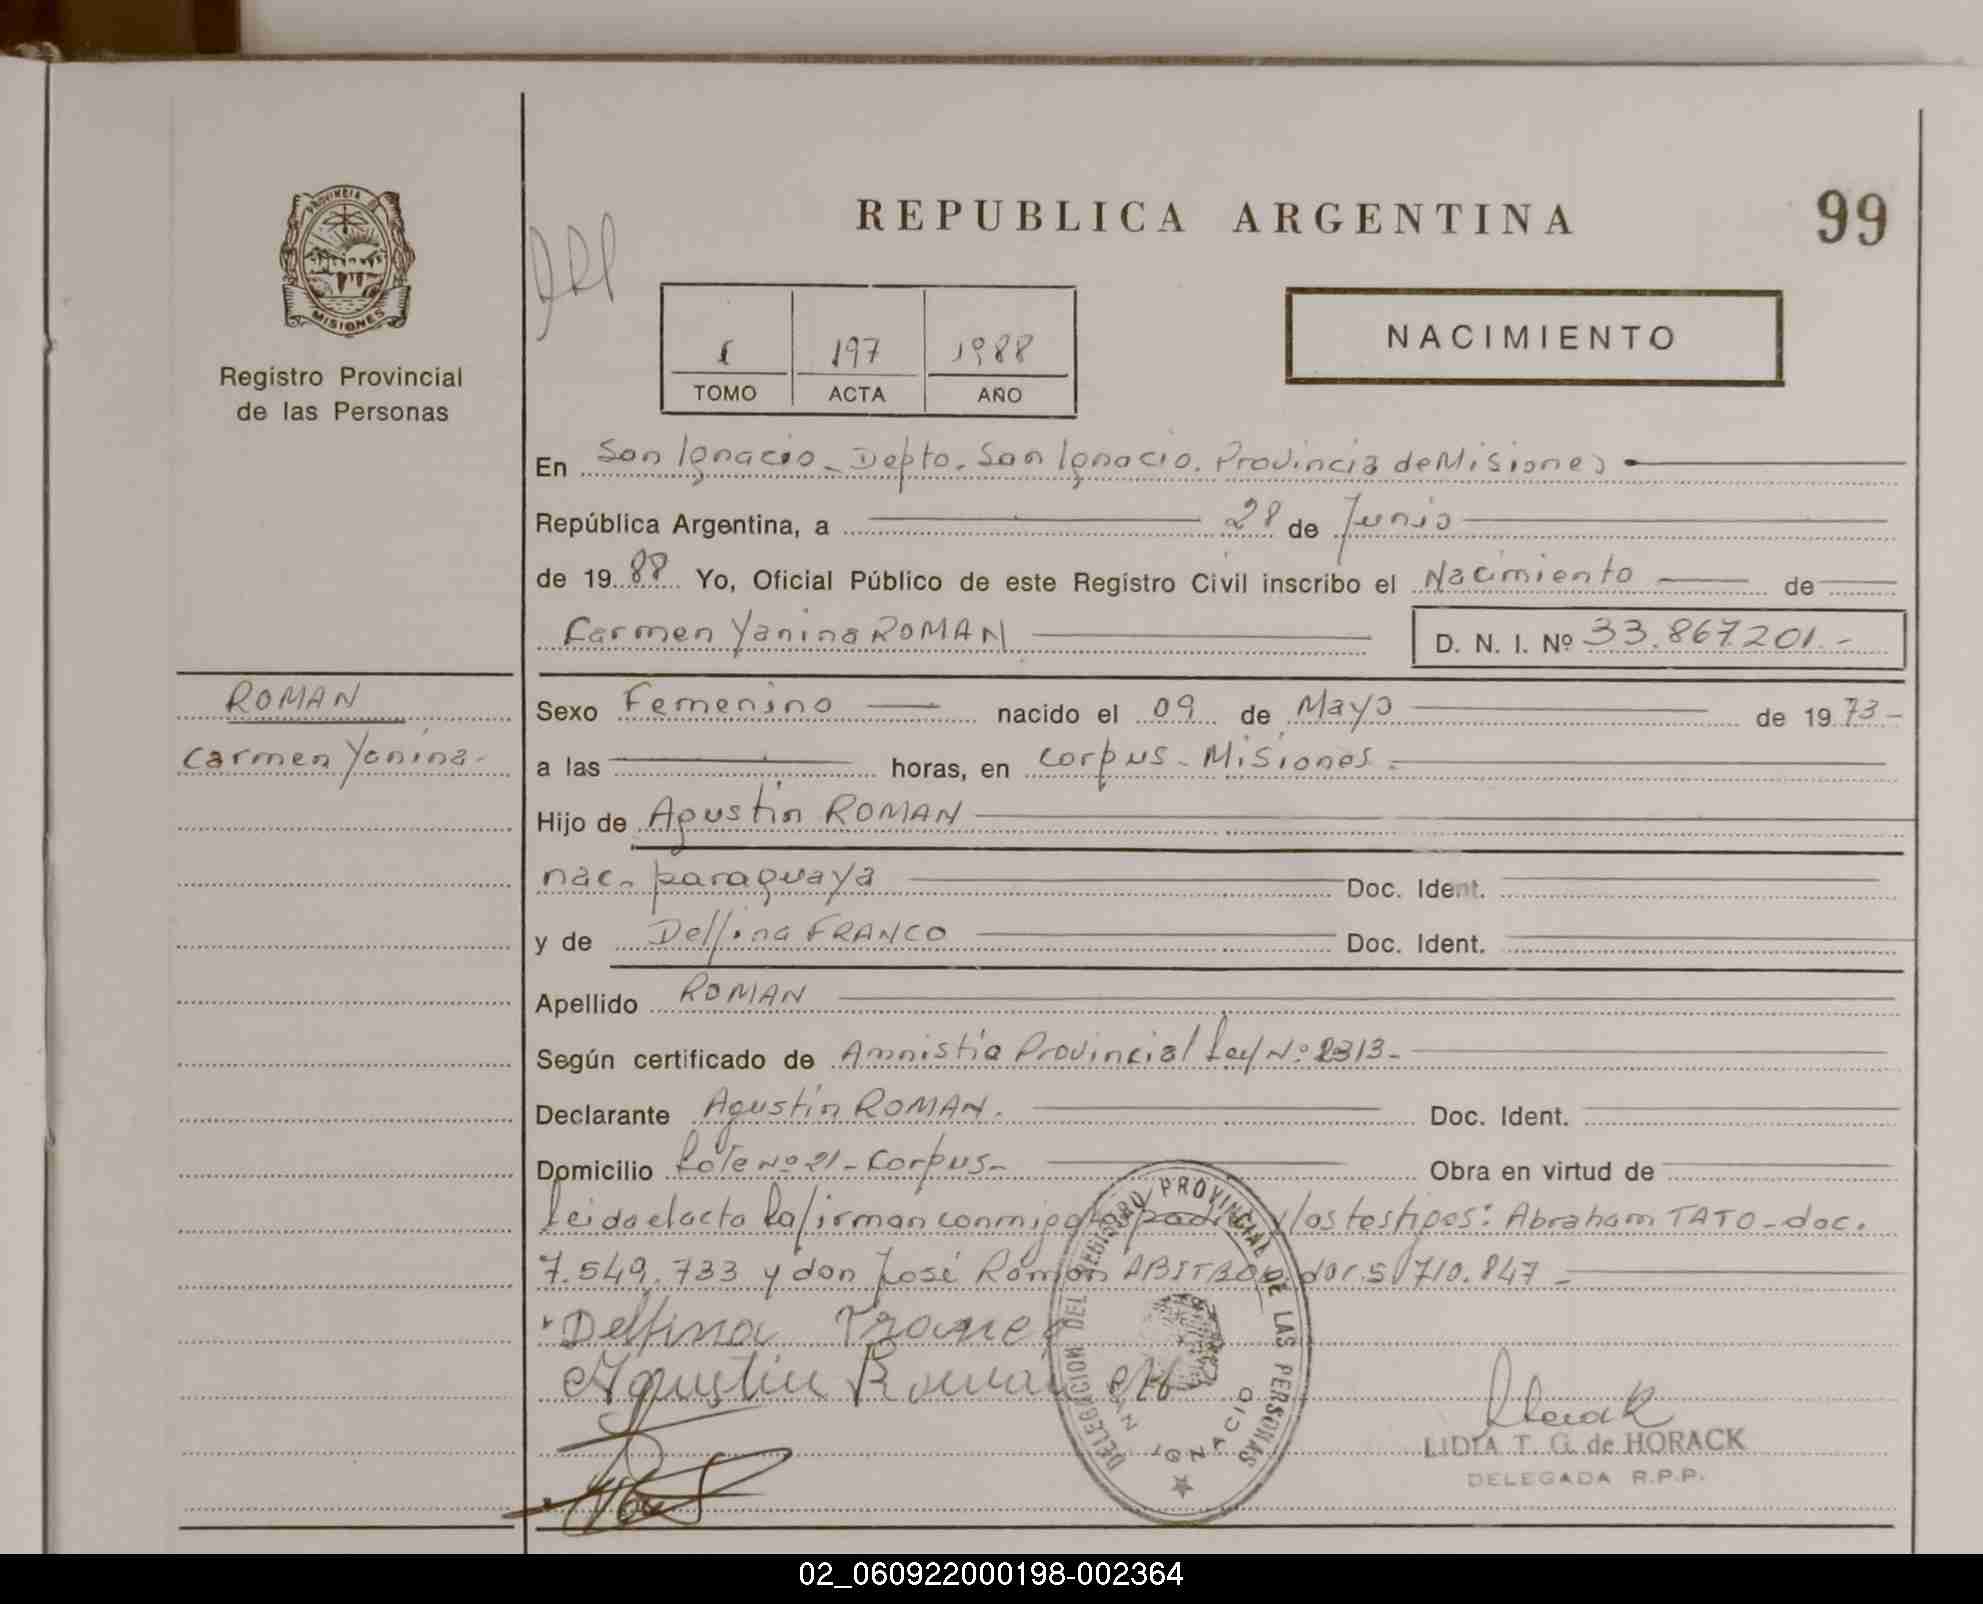 REPUBLICA ARGENTINA
99
PROVINCIA DE
MISIONES
Registro Provincial
de las Personas
1 197 1988
TOMO ACTA AÑO
NACIMIENTO
En San Ignacio - Depto. San Ignacio. Provincia de Misiones
República Argentina, a 28 de Junio
de 1988 Yo, Oficial Público de este Registro Civil inscribo el Nacimiento de
Carmen Yanina ROMAN D. N. I. Nº 33.867.201.-
ROMAN
Carmen Yanina-
Sexo Femenino nacido el 09 de Mayo de 1973-
a las horas, en Corpus - Misiones.
Hijo de Agustín ROMAN
nac. paraguaya Doc. Ident.
y de Delfina FRANCO Doc. Ident.
Apellido ROMAN
Según certificado de Amnistía Provincial Ley Nº 2313-
Declarante Agustín ROMAN. Doc. Ident.
Domicilio Lote Nº 21 - Corpus- Obra en virtud de
Leida el acta la firman conmigo padre y los testigos: Abraham TATO - doc.
7.549.733 y don José Ramón doc. 5.710.847 -
Delfina Franco
Agustin Roman
DELEGACION DEL REGISTRO PROVINCIAL DE LAS PERSONAS
SAN IGNACIO
LIDIA T. G. de HORACK
DELEGADA R.P.P.
02_060922000198-002364